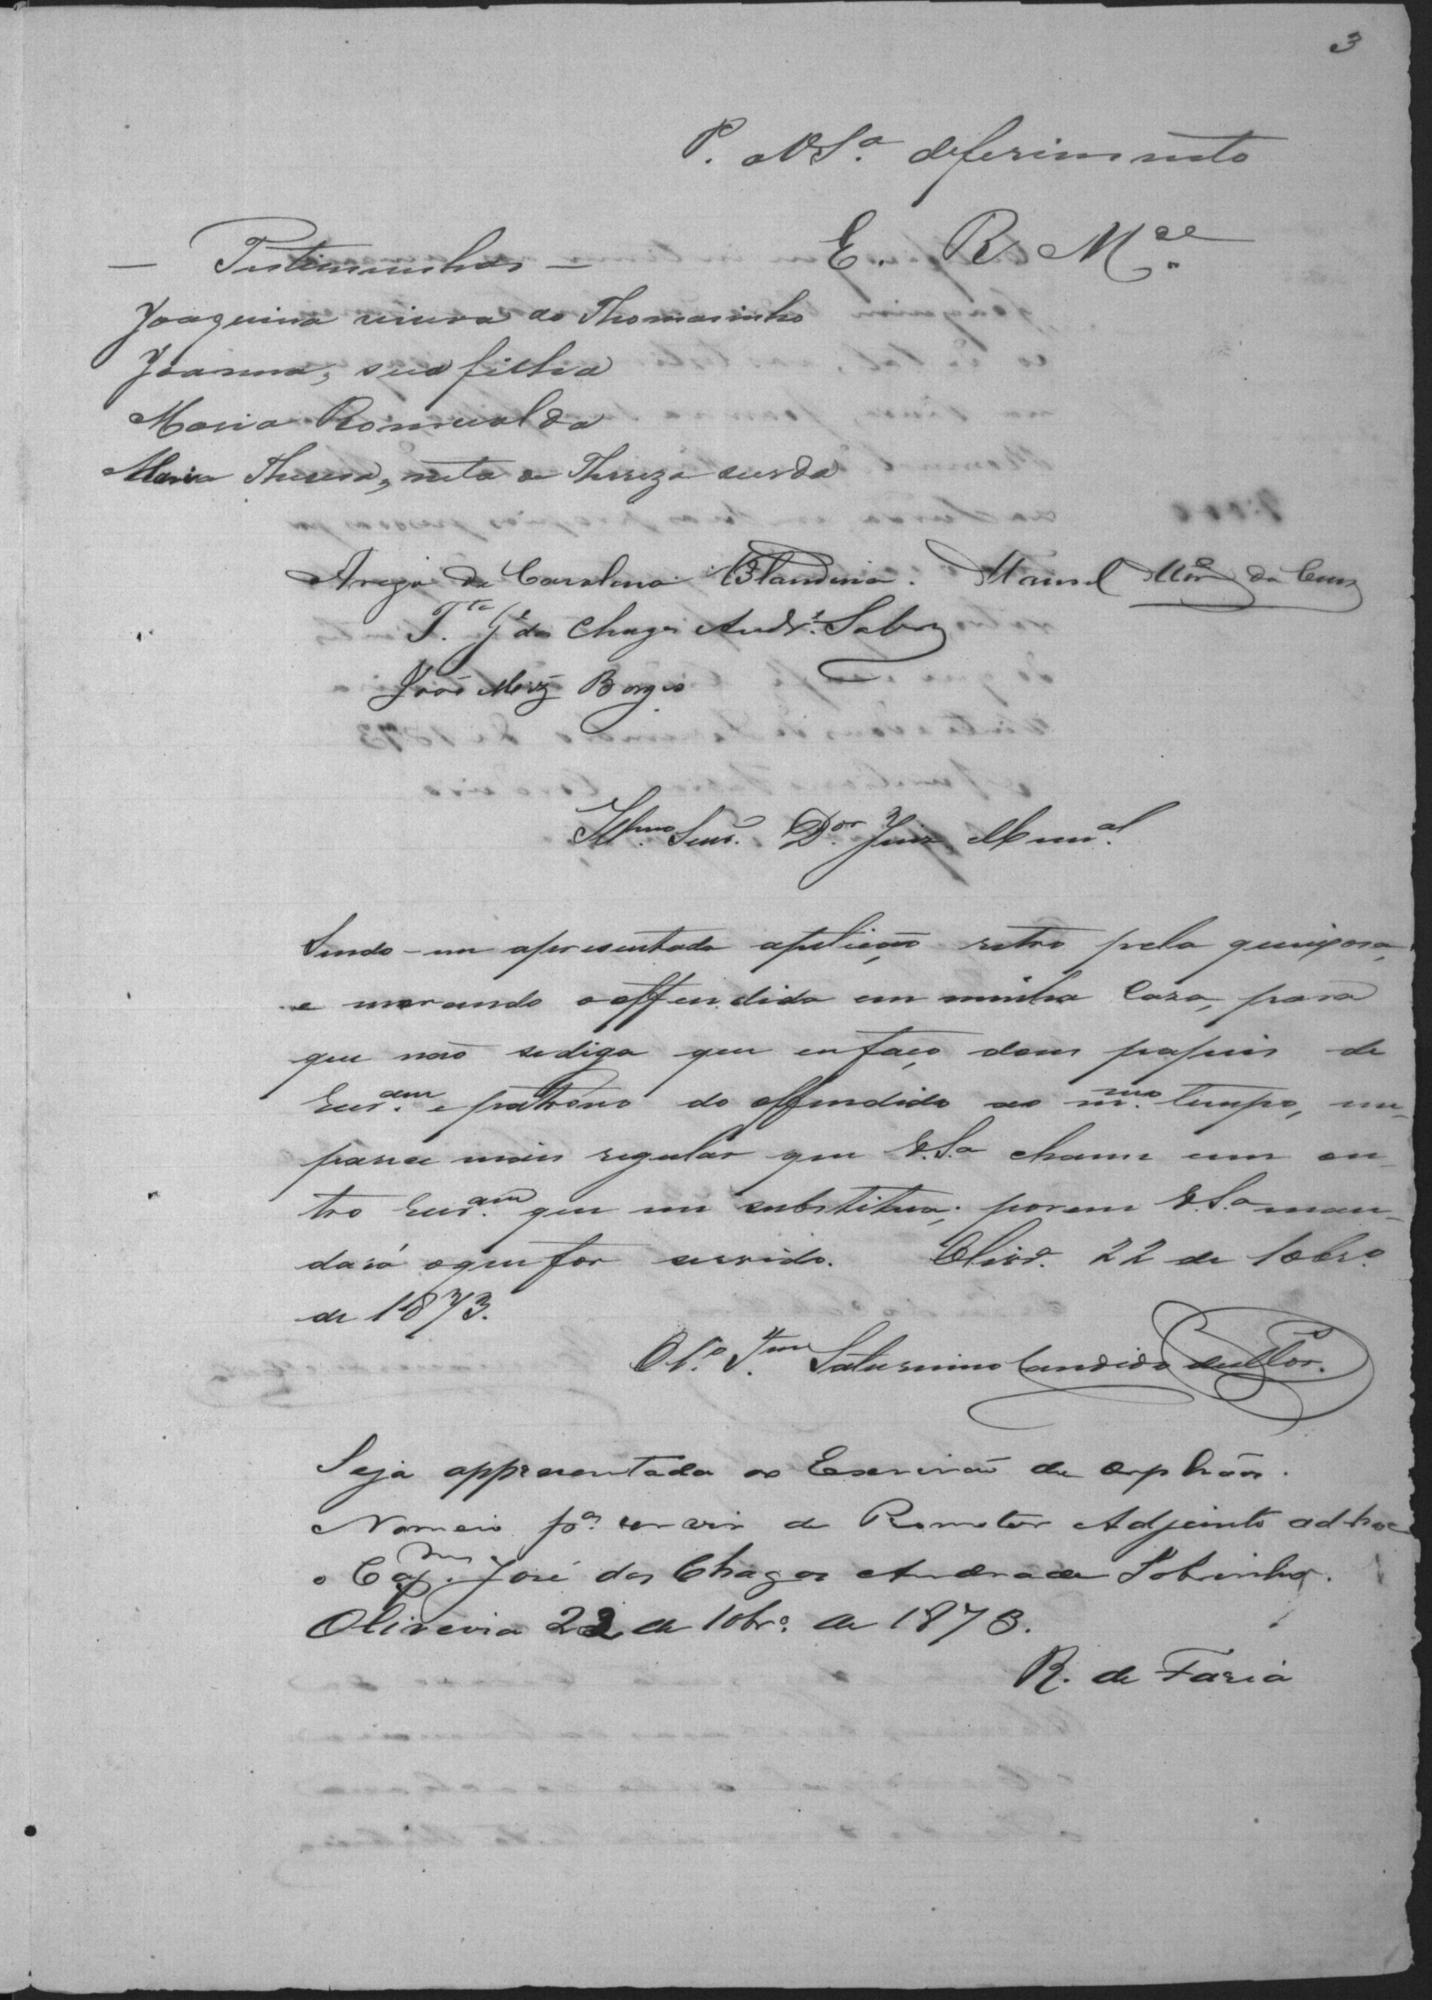 3
P. a V.Sª. deferimento
E. R. Mce.
— Testemunhas —
Joaquina viuva do Thomasinho
Joanna, sua filha
Maria Romualda
Maria Thereza, neta de Thereza surda
Arogo de Carolina Claudina. Manoel da Cruz
Te. Je. das Chagas Andre. Sobrº
João Borges
Illmo. Senr. Dor. Juiz Munal.
Sendo-me apresentada apetição retro pela queixosa,
e morando o offendido em minha Casa, para
que não sediga que eu faço dous papeis de
Escram. e patrono do offendido ao mmo. tempo, me
parece mais regular que V.Sa. chame um ou-
tro Escram. que me substitua; porem V.Sa. man-
dará oque for servido. Olivra. 22 de 10brº.
de 1873.
Saturnino Candido da
Seja appresentada ao Escrivão de Orphãos.
Nomeio pª. servir de Promotor Adjunto adhoc
o Capm. José das Chagas Andrade Sobrinho.
Oliveira 22 de 10brº. de 1873.
R. de Faria